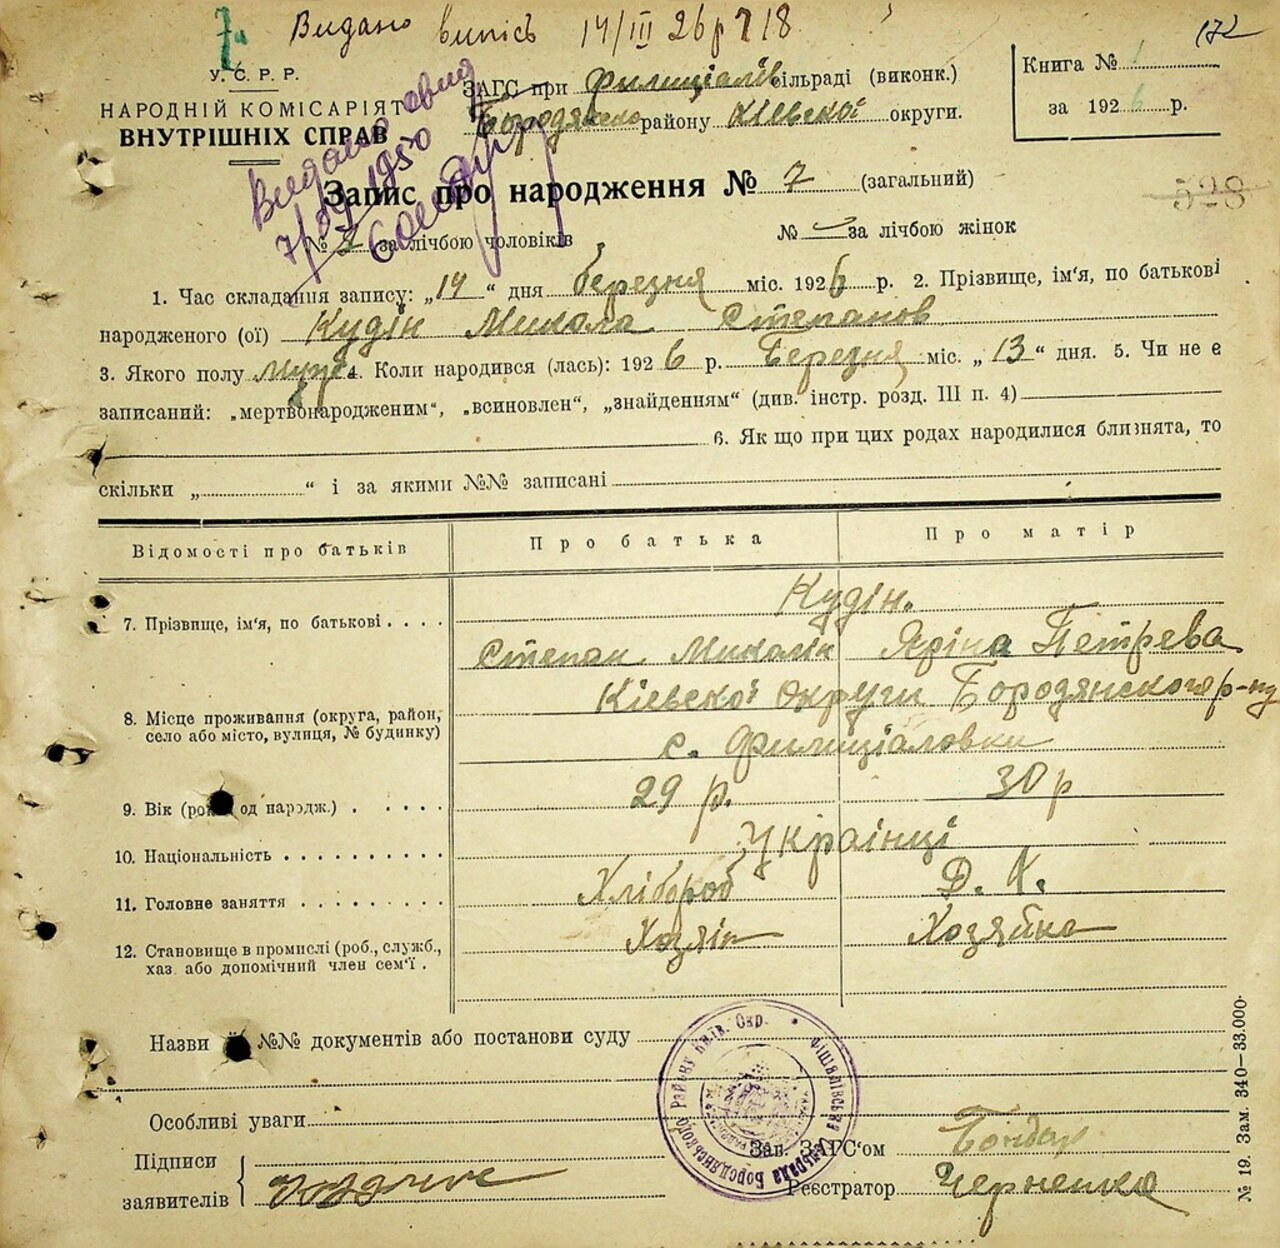 7а Видано випісь 14/III 26р 718
172
У. С. Р. Р.
НАРОДНІЙ КОМІСАРІЯТ
ВНУТРІШНІХ СПРАВ
ЗАГС при Филиціалів сільраді (виконк.)
Бородянсько району Кіевской округи.
Книга № 1
за 1926 р.
Видано
1950
Запис про народження № 7 (загальний)
528
№ 7 за лічбою чоловіків № — за лічбою жінок
1. Час складання запису: „14“ дня березня міс. 1926 р. 2. Прізвище, ім'я, по батькові
народженого (ої) Кудін Микола Степанов
3. Якого полу муж. 4. Коли народився (лась): 1926 р. Березня міс. „13“ дня. 5. Чи не є
записаний: „мертвонародженим“, „всиновлен“, „знайденням“ (див. інстр. розд. III п. 4)
6. Як що при цих родах народилися близнята, то
скільки „ “ і за якими №№ записані
Відомості про батьків Про батька Про матір
Кудін.
7. Прізвище, ім'я, по батькові . . . .
Степан Микалів Яріна Петрева
Кіевскоі Округи Бородянского р-ну
8. Місце проживання (округа, район,
село або місто, вулиця, № будинку)
с. Филиціаловки
9. Вік (рок од народж.) . . . . . 29 р. 30 р
10. Національність . . . . . . . . . . Українці
11. Головне заняття . . . . . . . . . Хлібороб Д. Х.
12. Становище в промислі (роб., служб.,
хаз. або допомічний член сем'ї . Хозяін Хозяйка
Назви й №№ документів або постанови суду
Бородянського Району Київ. Окр.
Особливі уваги
Підписи
заявителів
Зав. ЗАГС'ом Бондар
Реєстратор Черненко
№ 19. Зам. 340—33.000.